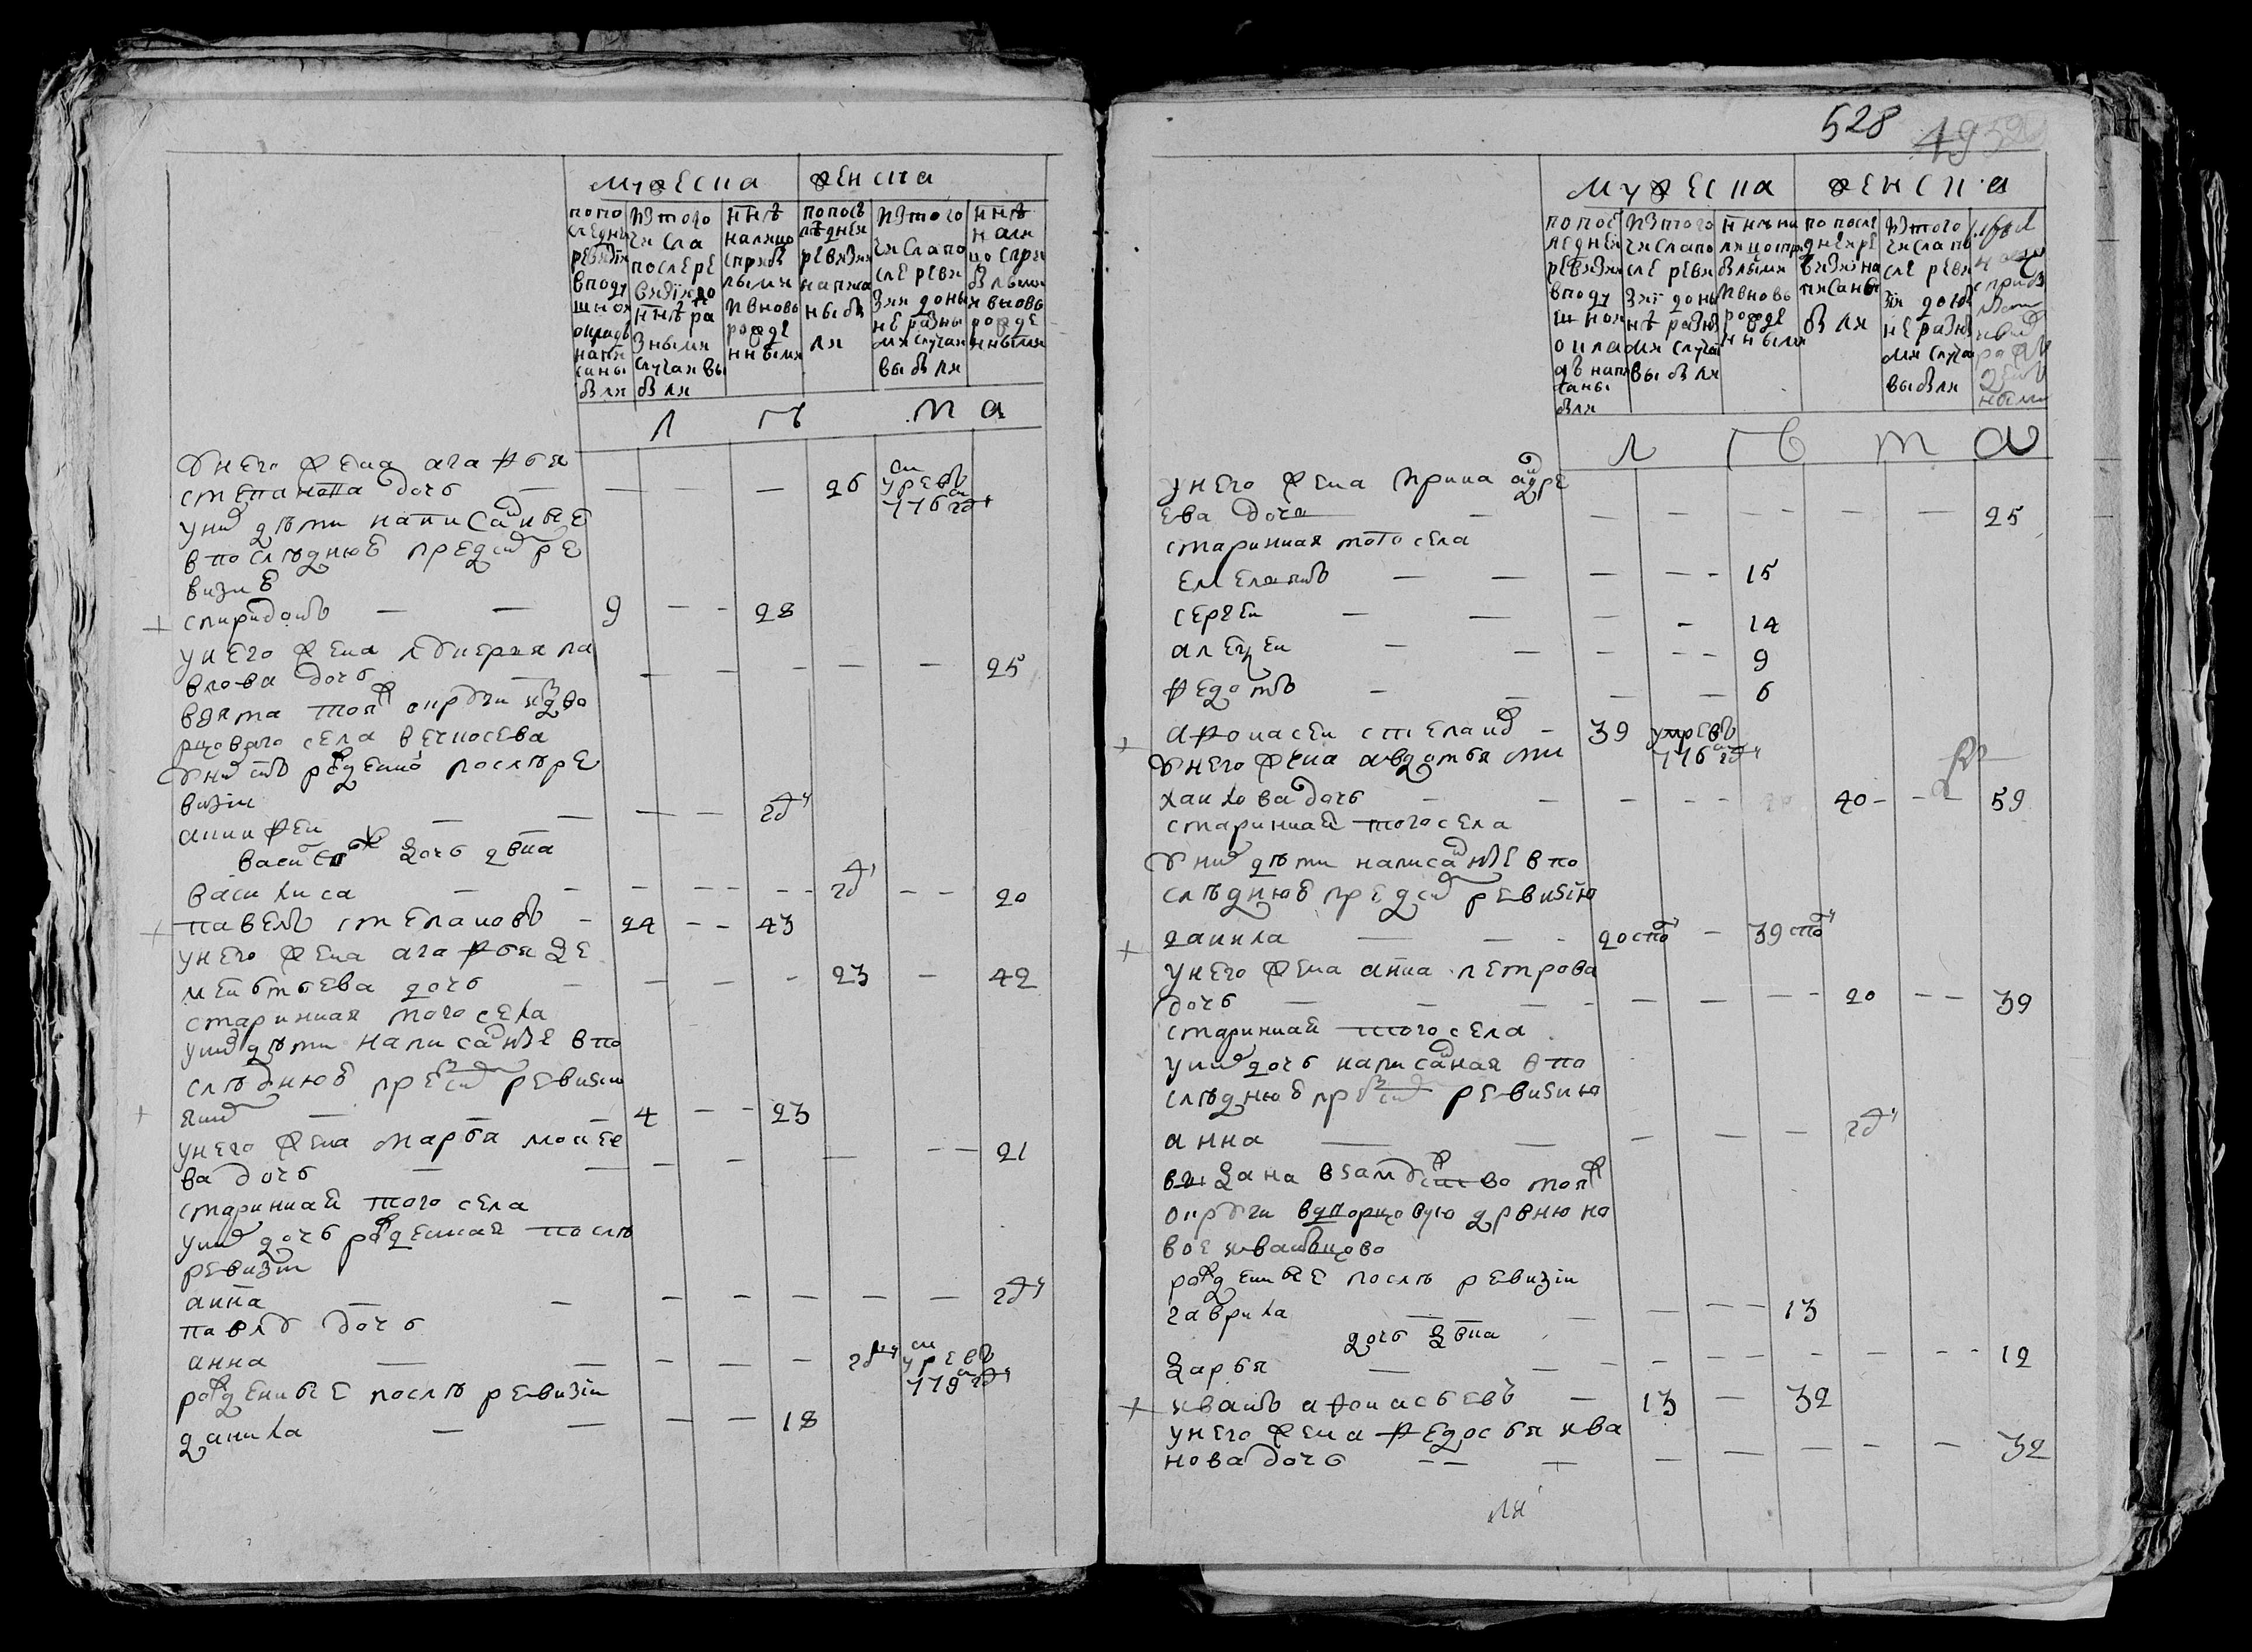 мужеска женска
попо следнѣй ревизiи вподу шной окладъ напи саны были
изтого числа послѣре визiидо ннѣ ра зными случаи вы были
ннѣ налицо сприб лыми ивновь рожде нными
попосъ лѣдней ревизии написа ныбы ли
изтого числапо сле реви зии доны не разны ми случаи выбыли
ннѣ нали цо спри былыми ивновь рожде нными
лѣта
Унего жена агафья
степанова дочь — — — — 26 умре въ 776м гд
уних дѣти написанные
впослѣднюю предсию ре
визию
спиридонъ — — 9 — - 28
унего жена
влова дочь — — — — — — 25
взята тойж округи издво
рцоваго села вечкосева
Уних снъ рожденно послѣре
визiи
анкифеи — — — — гд
василей дочь двка
василиса — — — — — гд — — 20
павелъ степановъ — 24 — - 43
унего жена агафья де
меньтьева дочь — — — — 23 — 42
старинная того села
уних дѣти написанные впо
слѣднюю пред сию ревизию
яким — — — 4 — - 23
унего жена марья моисее
ва дочь — — — — — — 21
стариннай того села
уних дочь рожденная послѣ
ревизiи
анна — — — — — — — гд
павла дочь
анна — — — — — гд умре въ 779м гд
рожденные послѣ ревизiи
данила — — — — 18
528
мужеска женска
попос ледней ревизии вподу шной окла дъ напи саны были
изтого числапо сле реви зiи доны нѣ разны ми случаи выбыли
ннѣ на лицо при былыми ивновь рожде нными
по после дней ре визiи на писаны были
изтого числа по сле реви зiи доны не разны ми случаи выбыли
лѣта
унего жена ирина андре
ева дочь — — — — — — 25
старинная того села
емельянъ — — — — - 15
сергеи — — — - 14
алексеи — — — — - 9
федотъ — — — — 6
афонасеи степанов — 39 умревъ 776м гд
Унего жена авдотья ми
хаилова дочь — — — — - 40 — — 59
стариннай тогосела
Уних дѣти написанные впо
слѣднюю пред сию ревизiю
данила — — - 20 — 39
унего жена анна петрова
дочь — — — — — — - 20 — — 39
стариннай того села
уних дочь написаная впо
слѣднюю пред сию ревизию
анна — — — — — гд
выдана взамужство тойж
округи вдворцовую дрвню но
вое иванцово
рожденные послѣ ревизiи
гаврила — — — — - 13
дочь двка
дарья — — — — — — — — 12
иванъ афонасьевъ — 13 — 32
унего жена федосья ива
нова дочь — — — — — — — — 32